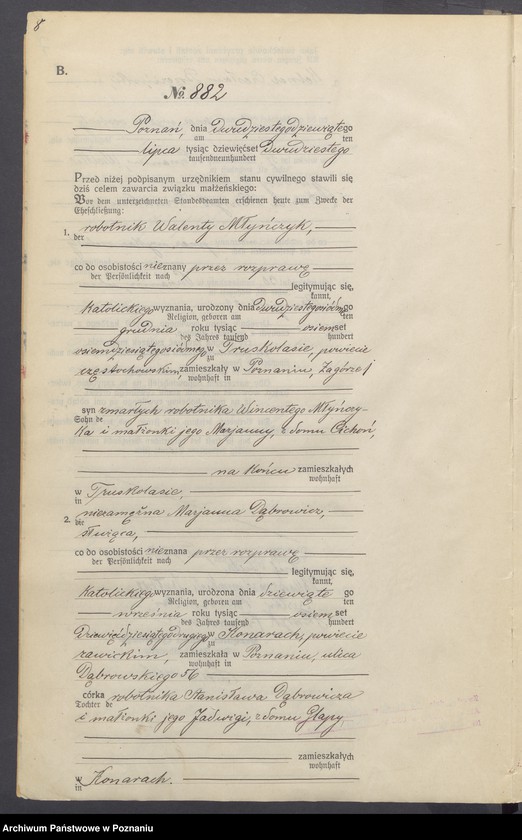 8
B.
№ 882
Poznań, dnia dwudziestegodziewiątego
am ten
lipca tysiąc dziewięćset dwudziestego
tausendneunhundert
Przed niżej podpisanym urzędnikiem stanu cywilnego stawili się
dziś celem zawarcia związku małżeńskiego:
Vor dem unterzeichneten Standesbeamten erschienen heute zum Zwecke der
Eheschließung:
1. robotnik Walenty Młyńczyk,
der
co do osobistości nieznany przez rozprawę
der Persönlichkeit nach
legitymując się,
kannt,
katolickiego wyznania, urodzony dnia dwudziestegosiódmego
Religion, geboren am ten
grudnia roku tysiąc ośiemset
des Jahres tausend hundert
osiemdziesiątegosiódmego w Truskolasie, powiecie
zu
częstochowskim, zamieszkały w Poznaniu, Zagórze 1
wohnhaft in
syn zmarłych robotnika Wincentego Młyńczy-
Sohn de
ka i małżonki jego Marjanny, z domu Cichoń,
na końcu zamieszkałych
wohnhaft
w Truskolasie,
in
2. niezamężna Marjanna Dąbrowicz,
die
służąca,
co do osobistości nieznana przez rozprawę
der Persönlichkeit nach
legitymując się,
kannt,
katolickiego wyznania, urodzona dnia dziewiąte go
Religion, geboren am ten
września roku tysiąc ośiemset
des Jahres tausend hundert
dziewięćdziesiątegodrugiego w Konarach, powiecie
zu
rawickim, zamieszkała w Poznaniu, ulica
wohnhaft in
Dąbrowskiego 56
córka robotnika Stanisława Dąbrowicza
Tochter de
i małżonki jego Jadwigi, z domu Glapy
zamieszkałych
wohnhaft
w Konarach.
in
Archiwum Państwowe w Poznaniu